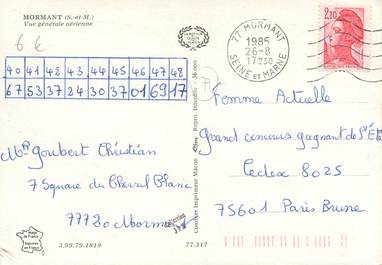 MORMANT (S.-et-M.)
Vue générale aérienne
6 €
77 MORMANT
1985
26-8
17H30
SEINE ET MARNE
2,10
40 41 42 43 44 45 46 47 48
67 53 37 24 30 37 01 69 17
Femme Actuelle
Grand concours gagnant de l'Eté
Cedex 8025
75601 Paris Brune
Mr Goubert Christian
7 Square du Cheval Blanc
77720 Mormant
Combier Imprimeur Mâcon
3.99.79.1819
77.317